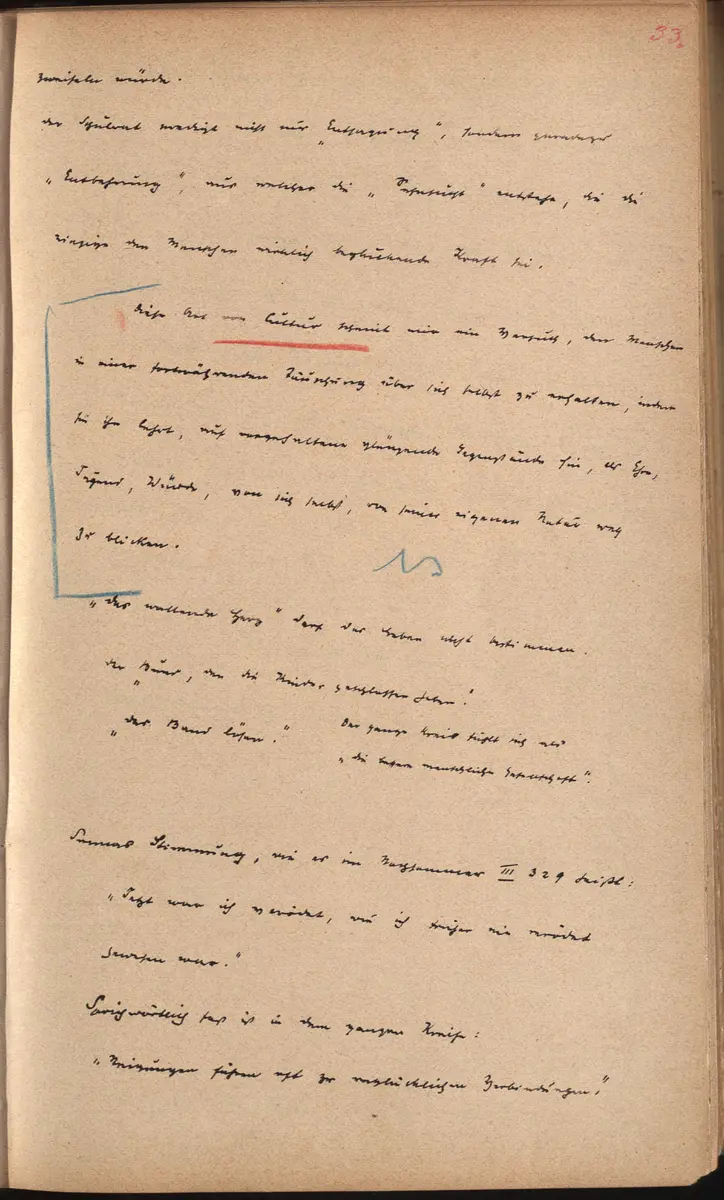 33.
zweifeln würde.
der Schulrat predigt nicht nur „Entsagung", sondern geradezu
„Entbehrung", aus welcher die „Sehnsucht" entstehe, die die
einzige den Menschen wirklich beglückende Kraft sei.
Diese Art von Cultur scheint mir ein Versuch, den Menschen
in einer fortwährenden Täuschung über sich selbst zu erhalten, indem
sie ihn lehrt, auf vorgehaltene glänzende Gegenstände hin, als Ehre,
Tugend, Würde, von sich selbst, von seiner eigenen Natur weg
zu blicken.
„das wallende Herz" darf das Leben nicht bestimmen.
der „Bund, den die Kinder geschlossen haben."
„das Band lösen." Der ganze Kreis fühlt sich als
„die bessere menschliche Gesellschaft".
Stimmung, wie es im Nachsommer III 329 heißt:
„Jetzt war ich verödet, wie ich früher nie verödet
gewesen war."
Sprichwörtlich fast ist in dem ganzen Kreise:
„Neigungen führen oft zu unglücklichen Verbindungen."